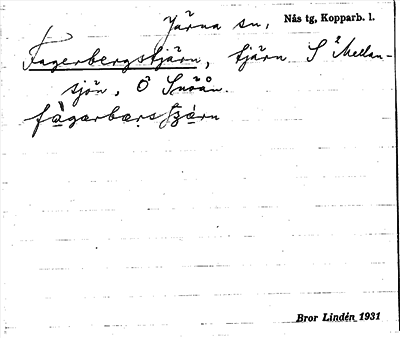 Järna sn, Nås tg, Kopparb. l.
Fagerbergstjärn, tjärn S Mellan-
sjön, Ö Snöån.
Bror Lindén 1931